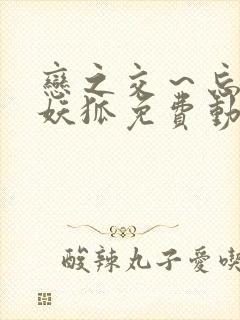 戀之交一忘
妖狐免費動
酸辣丸子愛喫